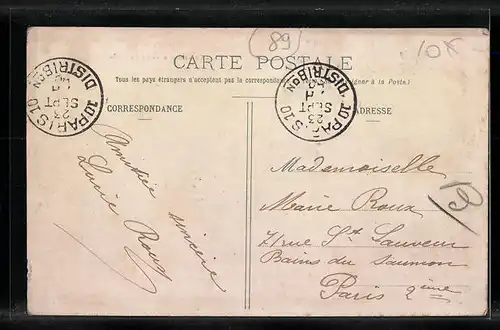 (89)
10K
CARTE POSTALE
Tous les pays étrangers n'acceptent pas la correspondance
signer à la Poste.)
CORRESPONDANCE
ADRESSE
10 PARIS 10
23
SEPT
DISTRIBON
10 PARIS 10
23
SEPT
DISTRIBON
Amitié sincère
Lucie Roux
Mademoiselle
Marie Roux
71 rue St Sauveur
Bains du Saumon
Paris 2ème
B